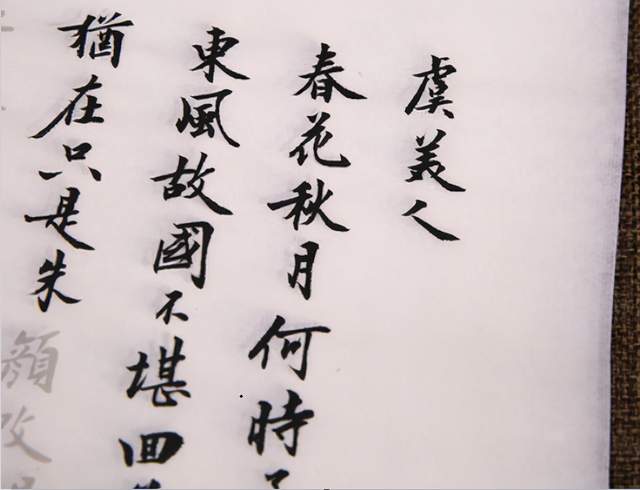 虞美人
春花秋月何時
東風故國不堪回
猶在只是朱顏改